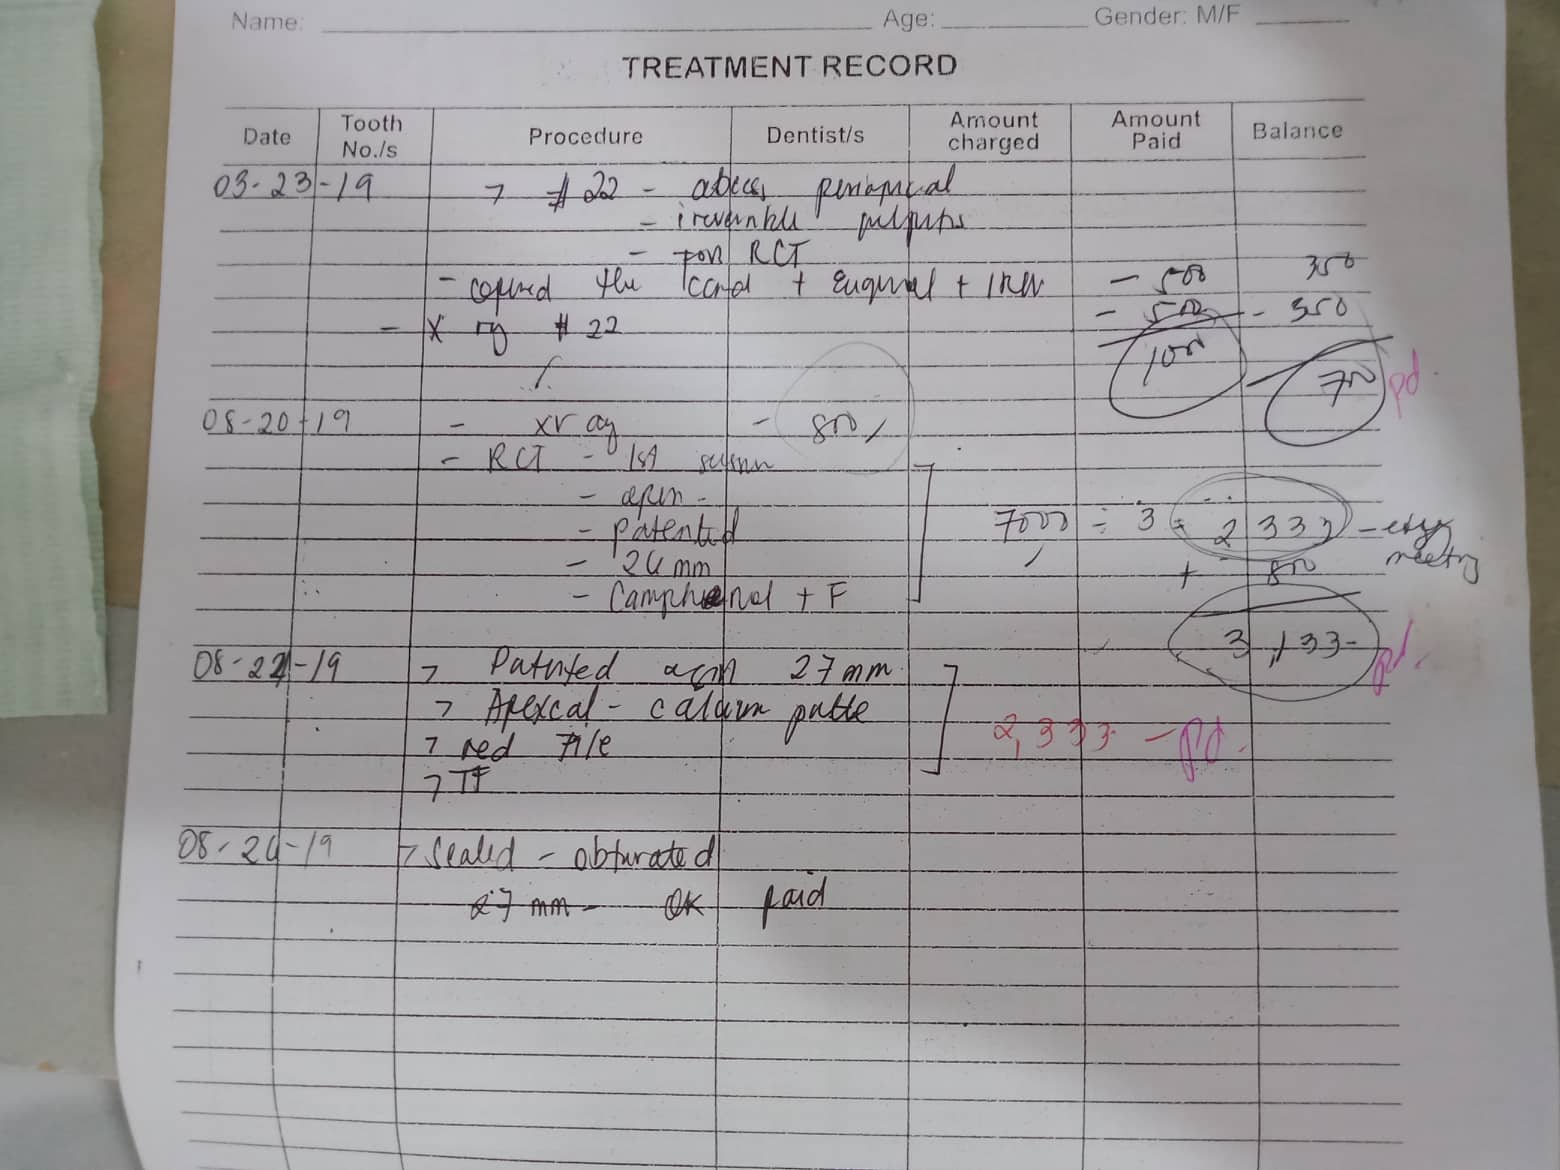 Name: Age: Gender: M/F
TREATMENT RECORD
Date Tooth No./s Procedure Dentist/s Amount charged Amount Paid Balance
03-23-19 # 22 - periapical
-
- RCT
- the + + - 500 350
- X ray # 22 - 500 - 350
1000 700 pd.
08-20-19 - xray - 800
- RCT - 1st
- open -
- patented 7000 ÷ 3 = 2333 - every meeting
- 24 mm + 800
- Camphenol + F
3,133- pd.
08-22-19 Patented again 27 mm
Apexcal - calcium paste
red File 2,333 - pd.
TF
08-24-19 Sealed - obturated
27 mm - OK paid